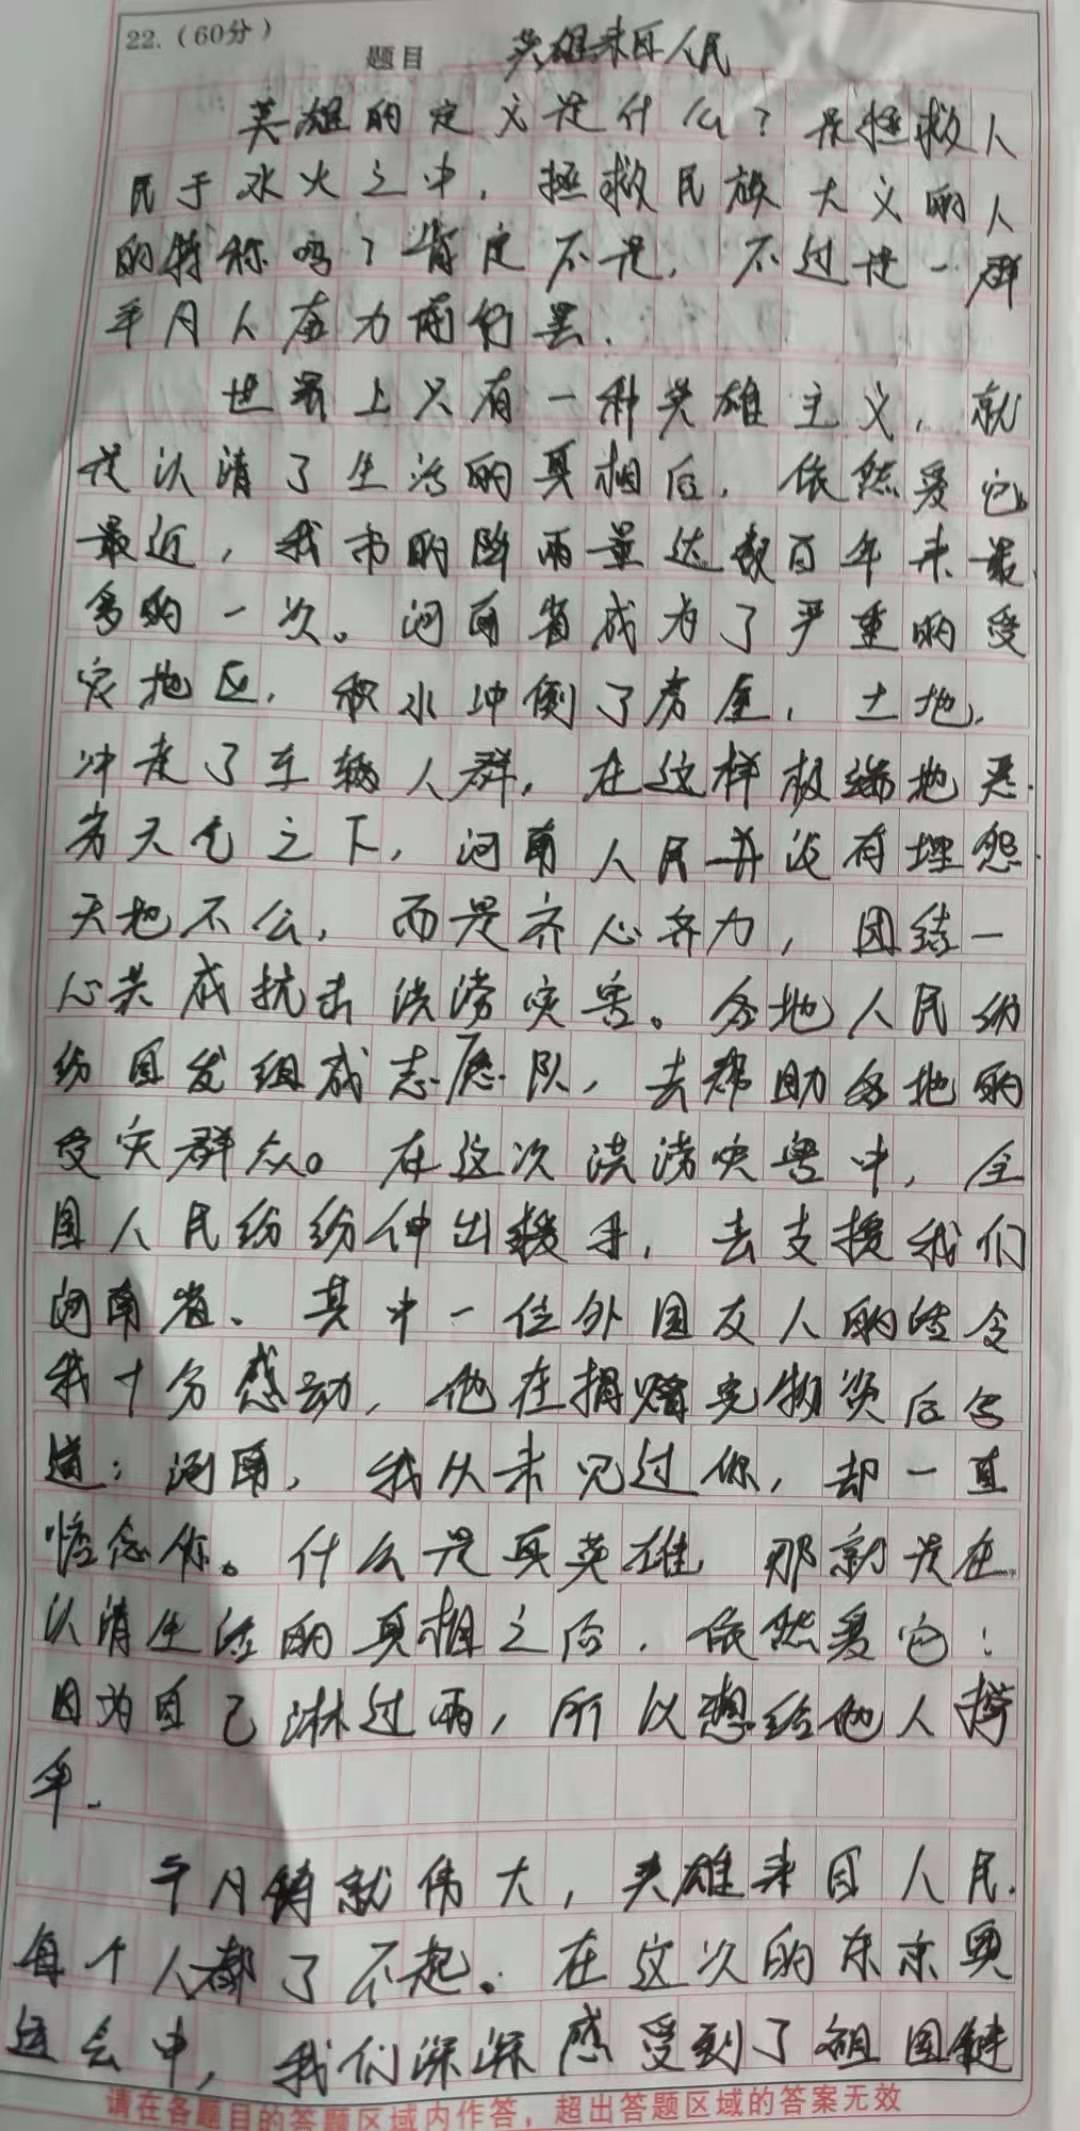 22.（60分）
题目 英雄来自人民
英雄的定义是什么？是拯救人
民于水火之中，拯救民族大义的人
的特称吗？肯定不是，不过是一群
平凡人奋力前行罢.
世界上只有一种英雄主义，就
是认清了生活的真相后，依然爱它.
最近，我市的降雨量达数百年来最
多的一次。河南省成为了严重的受
灾地区，积水冲倒了房屋，土地，
冲走了车辆人群，在这样极端地恶
劣天气之下，河南人民并没有埋怨
天地不公，而是齐心齐力，团结一
心共成抗击洪涝灾害。各地人民纷
纷自发组成志愿队，去帮助各地的
受灾群众。在这次洪涝灾害中，全
国人民纷纷伸出援手，去支援我们
河南省、其中一位外国友人的话令
我十分感动，他在捐赠完物资后写
道：河南，我从未见过你，却一直
惦念你。什么是真英雄 那就是在
认清生活的真相之后，依然爱它！
因为自己淋过雨，所以想给他人撑
伞.
平凡铸就伟大，英雄来自人民.
每个人都了不起。在这次的东京奥
运会中，我们深深感受到了祖国健
请在各题目的答题区域内作答，超出答题区域的答案无效